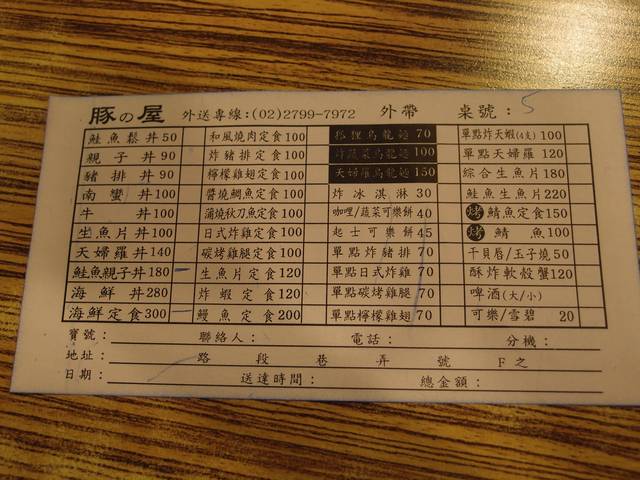 豚の屋 外送專線:(02)2799-7972 外帶 桌號: 5
鮭魚鬆丼50 和風燒肉定食100 狐狸烏龍麵 70 單點炸天蝦(4支)100
親子丼90 炸豬排定食100 炸蔬菜烏龍麵100 單點天婦羅120
豬排丼90 檸檬雞翅定食100 天婦羅烏龍麵150 綜合生魚片180
南蠻丼100 醬燒鯛魚定食100 炸冰淇淋 30 鮭魚生魚片220
牛丼100 蒲燒秋刀魚定食100 咖哩/蔬菜可樂餅40 烤鯖魚定食150
生魚片丼100 日式炸雞定食100 起士可樂餅45 烤鯖魚100
天婦羅丼140 碳烤雞腿定食100 單點炸豬排70 干貝唇/玉子燒50
鮭魚親子丼180 生魚片定食120 單點日式炸雞70 酥炸軟殼蟹120
海鮮丼280 炸蝦定食120 單點碳烤雞腿70 啤酒(大/小)
海鮮定食300 鰻魚定食200 單點檸檬雞翅70 可樂/雪碧 20
寶號: 聯絡人: 電話: 分機:
地址: 路 段 巷 弄 號 F之
日期: 送達時間: 總金額: